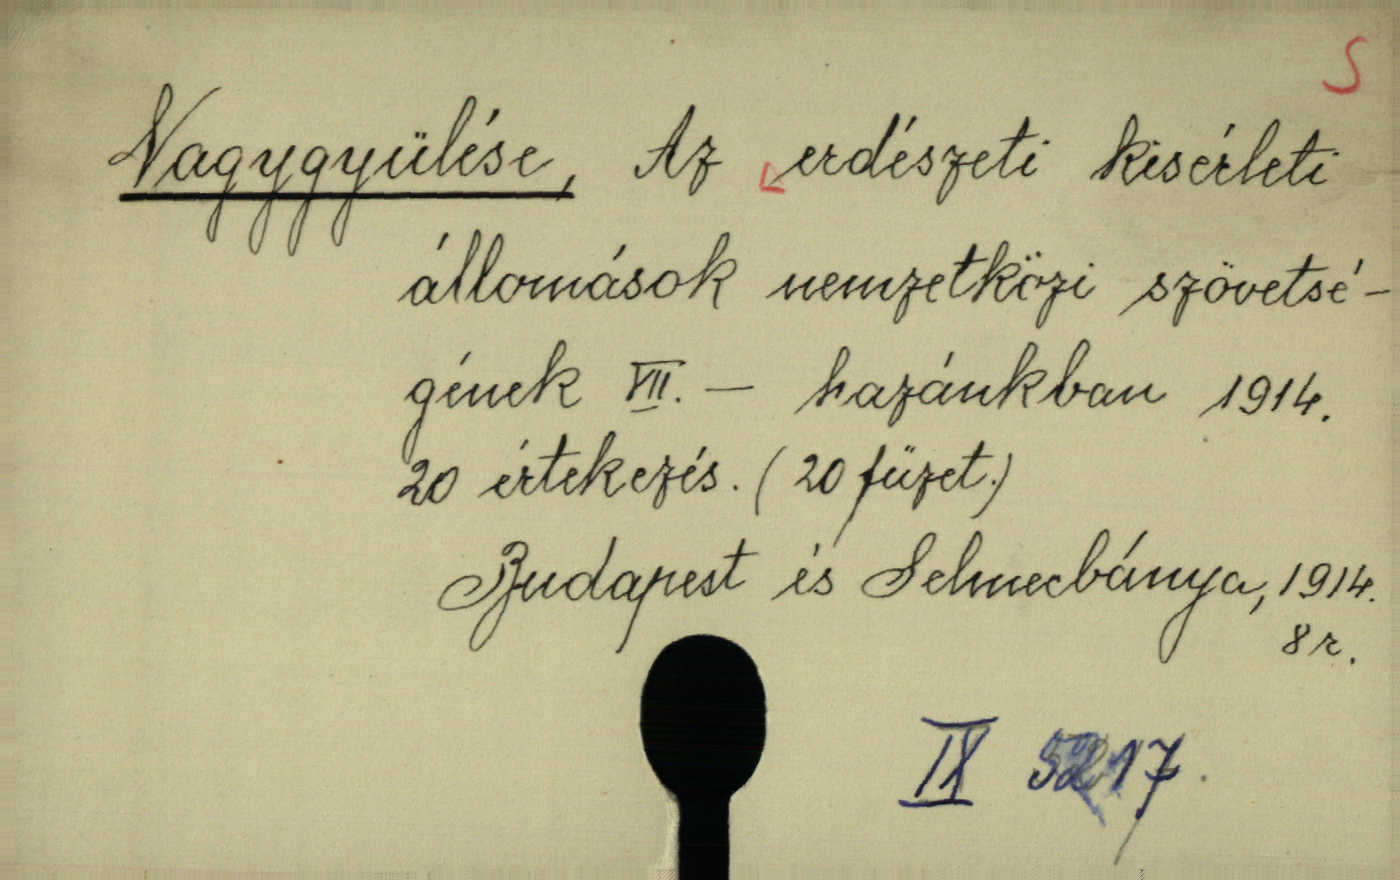 S
Nagygyülése, Az erdészeti kisérleti
állomások nemzetközi szövetsé-
gének VII. — hazánkban 1914.
20 értekezés. (20 füzet.)
Budapest és Selmecbánya, 1914.
8r.
IX